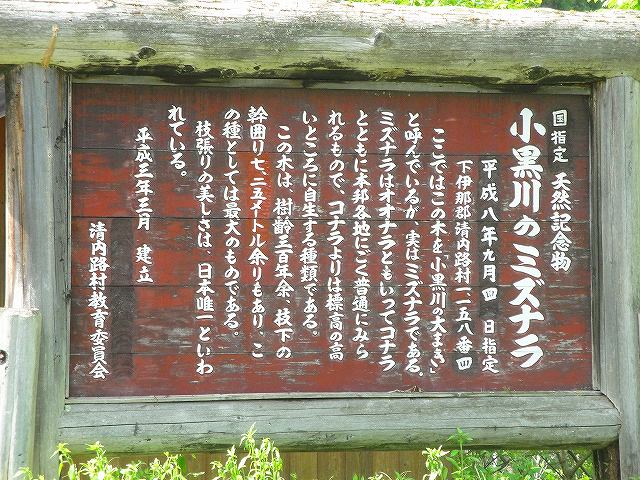 国指定 天然記念物
小黒川のミズナラ
平成八年九月四日指定
下伊那郡清内路村一一五八番四
ここではこの木を「小黒川の大まき」
と呼んでいるが、実はミズナラである。
ミズナラはオオナラともいってコナラ
とともに本邦各地にごく普通にみら
れるもので、コナラよりは標高の高
いところに自生する種類である。
この木は、樹齢三百年余、枝下の
幹囲り七、二五メートル余りもあり、こ
の種としては最大のものである。
枝張りの美しさは、日本唯一といわ
れている。
平成三年三月 建立
清内路村教育委員会